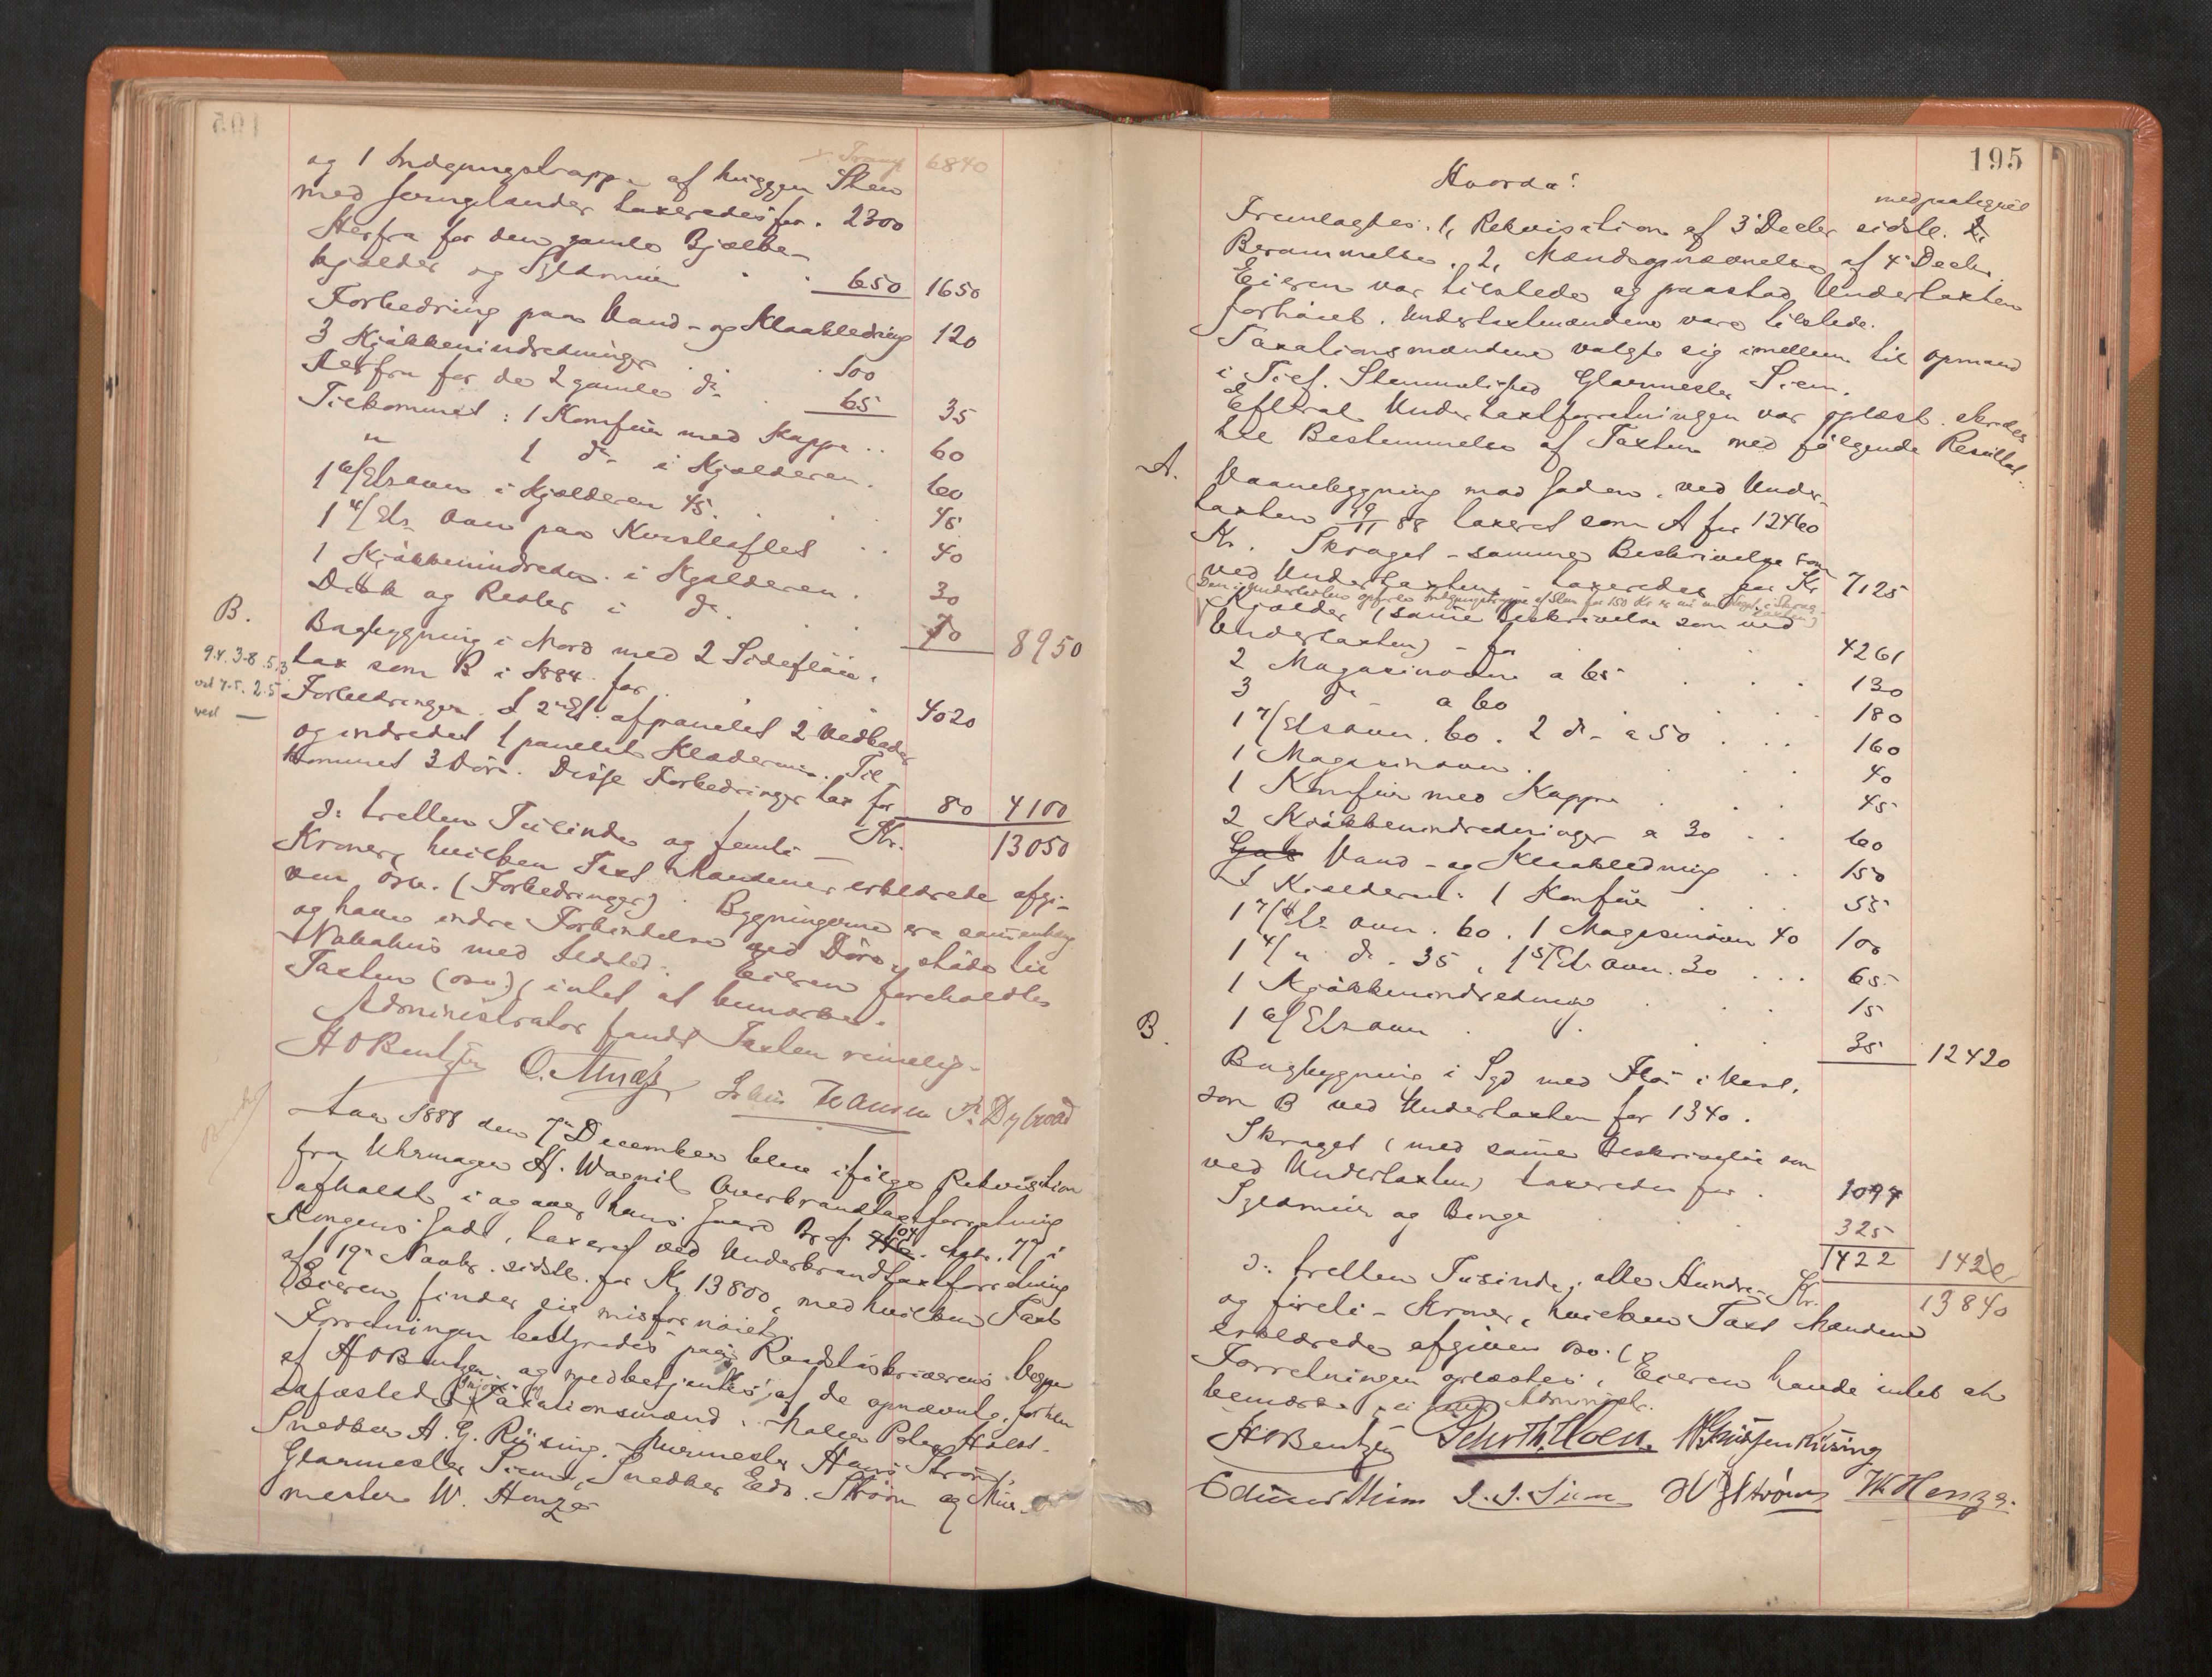 x. Transp 6840
og 1 Indgangstrappe af huggen Sten
med Jerngelænder taxeredes for. 2300
Herfra for den gamle Bjælke-
kjælder og Syldmur . . 650 1650
Forbedring paa Vand- og Kloakledning 120
3 Kjøkkenindretninger . . 100
Herfra for de 2 gamle do . 65 35
Tilkommet: 1 Komfur med Kappe .. 60
" 1 do i Kjælderen. 60
1 6/Etsovn i Kjælderen 45. . . 45
1 4/Ets Ovn paa Kvistloftet .. 40
1 Kjøkkenindretn. i Kjælderen. 30
Disk og Reoler i do. . . 70 8950
B.
Bagbygning i Nord med 2 Sidefløie,
9.4. 3-8. 5.3
tax som B i 1884 for . 4020
ved 7.5. 2.5
Forbedringer. I 2n Et. afpanelet 2 Vedboder
ved —
og indredet 1 panelet Klæderum. Til-
kommet 3 Døre. Disse Forbedringer tax for 80 4100
Kr. 13050
ɔ: tretten Tusinde og femti —
Kroner, hvilken Taxt Mændene erklærede afgi-
ven osv. (Forbedringer). Bygningerne ere sammenhæng
og have indre Forbindelse ved Døre, støde til
Nabohus med Ildsted. Eieren foreholdtes
Taxten (osv.), intet at bemærke.
Administrator fandt Taxten rimelig.
H O Bentzen O. Næss Johan Hansen P. Dybvad
Aar 1888 den 7de December blev ifølge Rekvisition
fra Uhrmager H. Wagnil Overbrandtaxtforretning
afholdt i og over hans Gaard Br. No 104. Mtr. 77 i
Kongens Gade, taxeret ved Underbrandtaxtforretning
af 19de Novbr. sidstl. for Kr 13800, med hvilken Taxt
Eieren finder sig misfornøiet.
Forretningen bestyredes paa Raadstuskriverens Vegne
af H O Bentzen og medbetjentes af de opnævnte, forhen
edfæstede Taxationsmænd: Maler Peter Hoen.
Snedker A. G. Rüsing, Murmester Hans Strøm,
Glarmester Siem, Snedker Edv. Thiem og Mur-
mester W. Henze
195
Hvorda!
medpaategnet
Fremlagtes. 1, Rekvisition af 3 Decbr sidstl.
Berammelse. 2, Mandsopnævnelse af 4 Decbr.
Eieren var tilstede og paastod Undertaxten
forhøiet. Undertaxtmændene vare tilstede.
Taxationsmændene valgte sig imellem til Opmand
i Tilf. Stemmelighed Glarmester Siem.
Efterat Undertaxtforretningen var oplæst, skredes
til Bestemmelse af Taxten med følgende Resultat.
A.
Vaanebygning mod Gaden, ved Under-
taxten 19/11 88 taxeret som A for 12460
Kr. Skroget - samme Beskrivelse som
ved Undertaxten - taxeredes for Kr 7125
(Den i Undertaxten opførte Indgangstrappe af Sten for 150 Kr er nu medtaget i Skrog-taxten)
Kjælder (samme Beskrivelse som ved
Undertaxten) - for . . . 4261
2 Magasinovne a 65 . . . 130
3 do - a 60 . . . 180
1 7/Etsovn. 60. 2 do a 50 . . . 160
1 Magasinovn. . . . 40
1 Komfur med Kappe . . . 45
2 Kjøkkenindretninger a 30 . . 60
Vand- og Kloakledning . . 150
I Kjælderen: 1 Komfur . . . 55
1 7/Ets Ovn. 60. 1 Magasinovn 40 100
1 4/" do. 35, 1 5/Ets Ovn. 30 . . . 65
1 Kjøkkenindretning . . . 15
1 6/Etsovn . . . 35 12420
B.
Bagbygning i Syd med Fløi i Vest,
som B ved Undertaxten for 1340.
Skroget (med samme Beskrivelse som
ved Undertaxten) taxeredes for . 1097
Syldmur og Binge . . . 325
1422 1420
Kr. 13840
ɔ: tretten Tusinde, otte Hundre-
og fireti - Kroner, hvilken Taxt Mændene
erklærede afgiven osv. (
Forretningen oplæstes, Eieren havde intet at
bemærke, ei heller Administr.
H O Bentzen Peter Th. Hoen. A Rüsing
Edvard Thiem J. J. Siem H Strøm W. Henze.